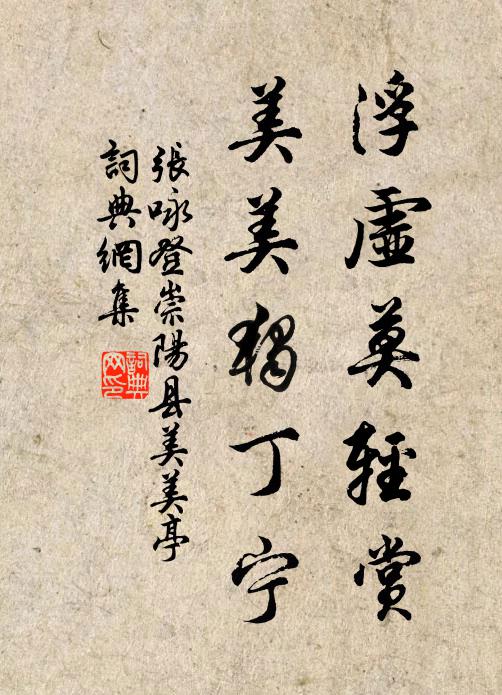 浮虛莫輕賞
美美獨丁宁
張咏登崇陽县美美亭
詞典網集
詞典
网印